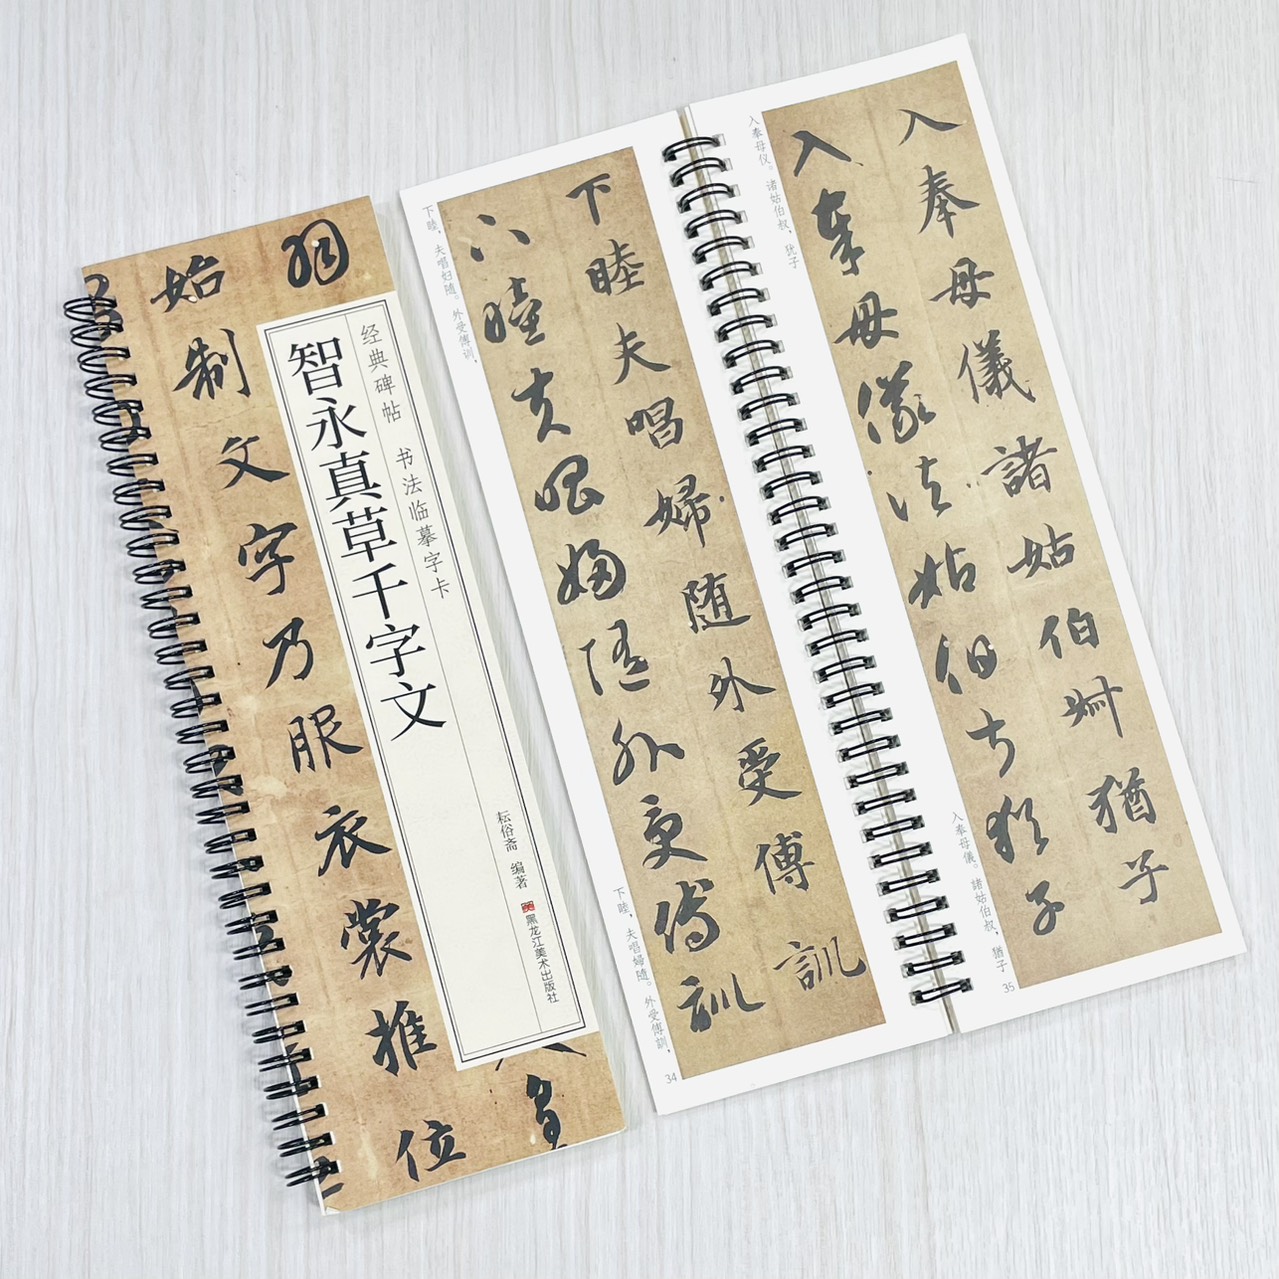 始制文字乃服衣裳推位
经典碑帖 书法临摹字卡
智永真草千字文
耘俗斋 编著
黑龙江美术出版社
下睦夫唱婦随外受傅訓
下睦夫唱婦随外受傅訓
下睦，夫唱妇随。外受傅训，
下睦，夫唱婦随。外受傅訓，
34
入奉母儀諸姑伯叔猶子
入奉母儀諸姑伯叔猶子
入奉母仪。诸姑伯叔，犹子
入奉母儀。諸姑伯叔，猶子
35